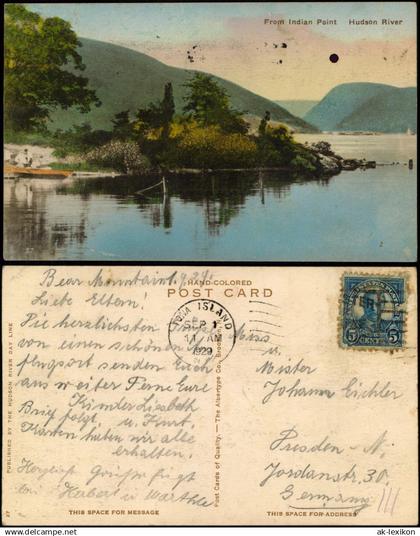 From Indian Point Hudson River
HAND-COLORED
POST CARD
Bear Mountain
Liebe Eltern!
Die herzlichsten
von einem schönen
flugsort senden Euch
aus weiter Ferne Eure
Kinder Lisbeth
Brief folgt, u. Kurt.
Karten haben wir alle
erhalten.
Herzliche Grüße fügt
bei Herbert u.
IONA ISLAND
SEP 1
11 AM
1929
u.
Mister
Johann Eichler
Dresden - N.
Jordanstr. 30.
Germany
5 CENTS 5
PUBLISHED BY THE HUDSON RIVER DAY LINE
Post Cards of Quality. — The Albertype Co., Brooklyn
27
THIS SPACE FOR MESSAGE
THIS SPACE FOR ADDRESS
ak-lexikon